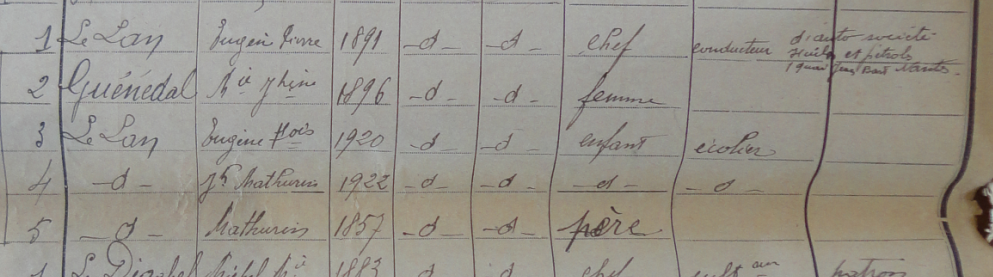 1 Le Lan Eugèn Pierre 1891 -d- -d- chef conducteur d'auto société
Huiles et pétrole
1 quai Jean Bart Nantes.
2 Guénédal Mie Jhine 1896 -d- -d- femme
3 Le Lan Eugène Flois 1920 -d- -d- enfant écolier
4 -d- Jh Mathurin 1922 -d- -d- -d- -d-
5 -d- Mathurin 1857 -d- -d- père
1 Le 1883 chef patron